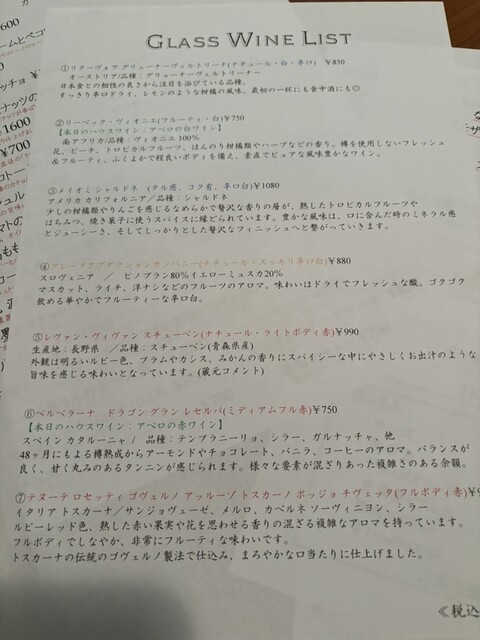 GLASS WINE LIST
①リターヴォア グリューナーヴェルトリーナ(ナチュール・白・辛口) ¥850
オーストリア/品種：グリューナーヴェルトリーナー
日本食との相性の良さから注目を浴びている品種。
すっきり辛口ドライ、レモンのような柑橘の風味。最初の一杯にも食中酒にも◎
②リーベック・ヴィオニエ(フルーティ・白)¥750
【本日のハウスワイン：アペロの白ワイン】
南アフリカ/品種：ヴィオニエ100%
花、ピーチ、トロピカルフルーツ、ほんのり柑橘類やハーブなどの香り。樽を使用しないフレッシュ
&フルーティ、ふくよかで程良いボディを備え、素直でピュアな風味豊かなワイン。
③メイオミシャルドネ (タル感、コク有、辛口白)¥1080
アメリカ カリフォルニア/品種：シャルドネ
少しの柑橘類やりんごを感じるなめらかで贅沢な香りの層が、熟したトロピカルフルーツや
はちみつ、焼き菓子に使うスパイスに縁どられています。豊かな風味は、口に含んだ時のミネラル感
とジューシーさ、そしてしっかりとした贅沢なフィニッシュへと繋がっていきます。
④グレープアブダクションカンパニー(ナチュール・スッキリ辛口白)¥880
スロヴェニア ／ ピノブラン80%イエローミュスカ20%
マスカット、ライチ、洋ナシなどのフルーツのアロマ。味わいはドライでフレッシュな酸。ゴクゴク
飲める華やかでフルーティーな辛口白。
⑤レヴァン・ヴィヴァン スチューベン(ナチュール・ライトボディ赤)¥990
生産地：長野県 ／品種：スチューベン(青森県産)
外観は明るいルビー色、プラムやカシス、みかんの香りにスパイシーな中にやさしくお出汁のような
旨味を感じる味わいとなっています。(蔵元コメント)
⑥ベルベラーナ ドラゴン グラン レセルバ(ミディアムフル赤)¥750
【本日のハウスワイン：アペロの赤ワイン】
スペイン カタルーニャ/ 品種：テンプラニーリョ、シラー、ガルナッチャ、他
48ヶ月にもよる樽熟成からアーモンドやチョコレート、バニラ、コーヒーのアロマ。バランスが
良く、甘く丸みのあるタンニンが感じられます。様々な要素が混ざりあった複雑さのある余韻。
⑦テヌーテ ロセッティ ゴヴェルノ アッルーゾ トスカーノ ポッジョ チヴェッタ(フルボディ赤)¥9
イタリア トスカーナ／サンジョヴェーゼ、メルロ、カベルネ ソーヴィニヨン、シラー
ルビーレッド色、熟した赤い果実や花を思わせる香りの混ざる複雑なアロマを持っています。
フルボディでしなやか、非常にフルーティな味わいです。
トスカーナの伝統のゴヴェルノ製法で仕込み、まろやかな口当たりに仕上げました。
≪税込